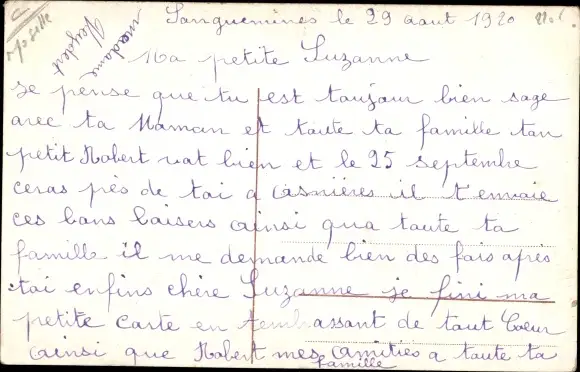 Sarguemines le 29 aout 1920
madame
Ma petite Suzanne
Je pense que tu est toujour bien sage
avec ta Maman et toute ta famille ton
petit Robert vat bien et le 25 septembre
ceras pès de toi a asnières il t'envoie
ces bons baisers ainsi qua toute ta
famille il me demande bien des fois après
toi enfins chère Suzanne je fini ma
petite carte en t'embrassant de tout Coeur
ainsi que Robert mes amitiés a toute ta
famille